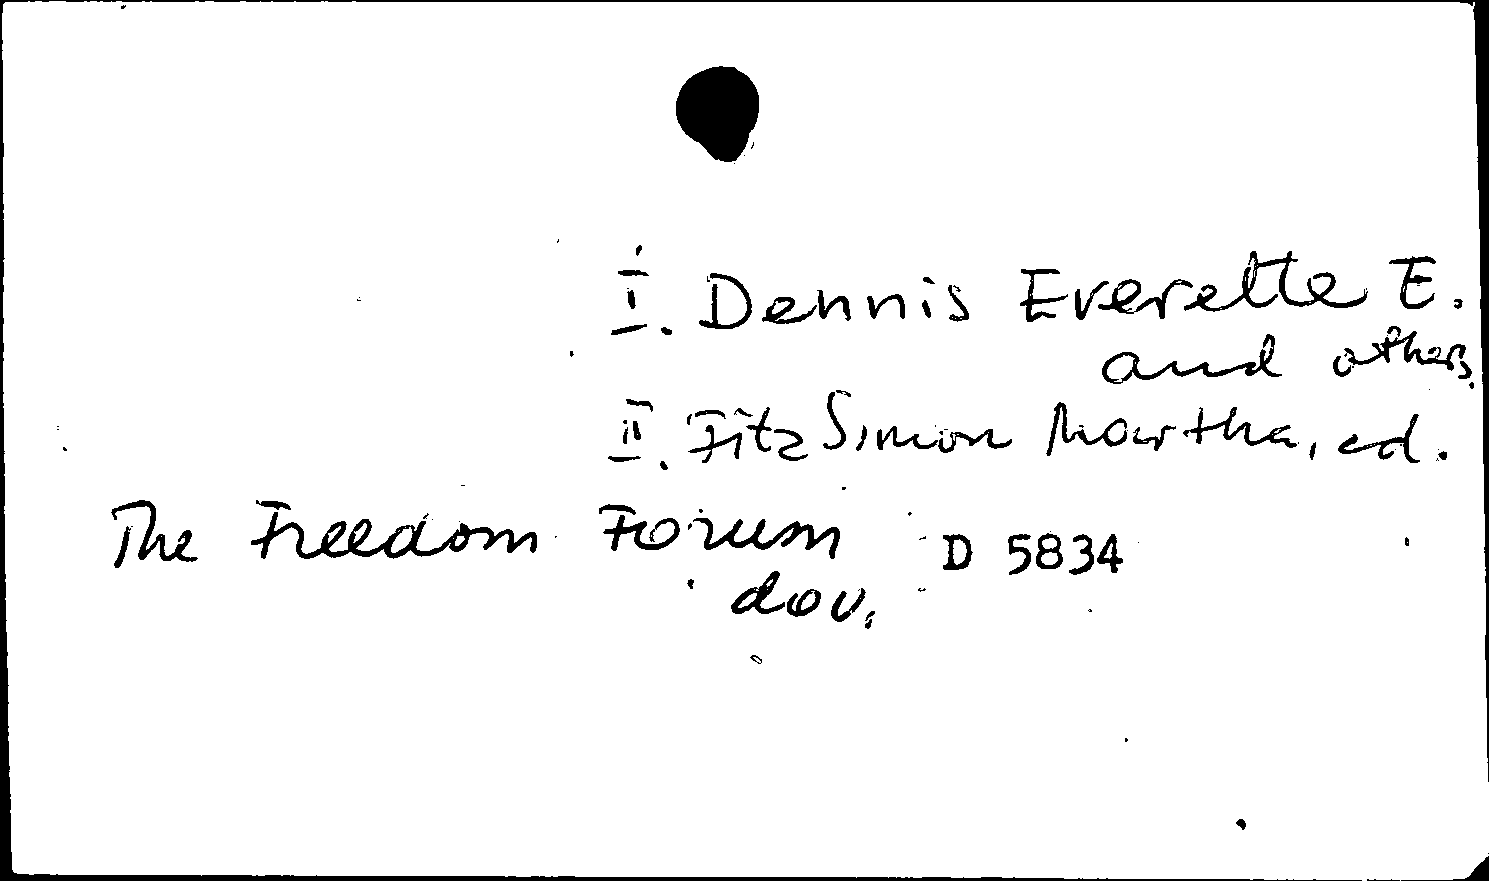 I. Dennis Everette E.
and others.
II. FitzSimon Martha, ed.
The Freedom Forum D 5834
dov.